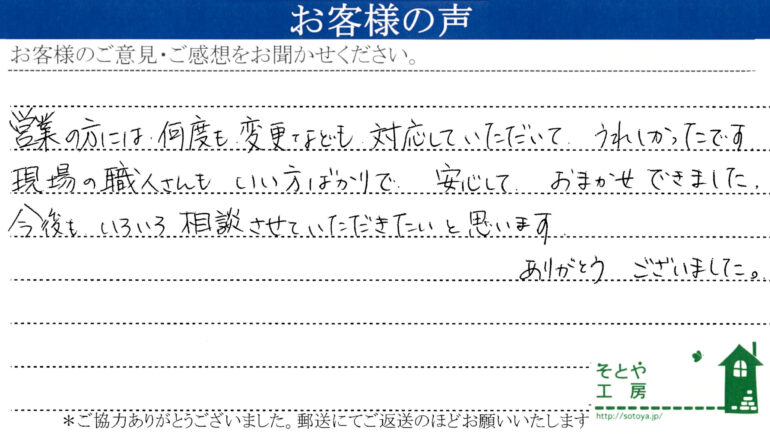 お客様の声
お客様のご意見・ご感想をお聞かせください。
営業の方には 何度も 変更なども 対応していただいて うれしかったです
現場の職人さんも いい方ばかりで 安心して おまかせできました。
今後も いろいろ 相談させていただきたいと思います
ありがとう ございました。
そとや
工房
http://sotoya.jp/
＊ご協力ありがとうございました。郵送にてご返送のほどお願いいたします